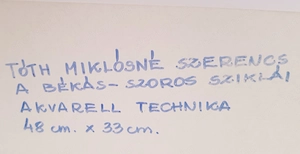 TÓTH MIKLÓSNÉ SZERENCS
A BÉKÁS-SZOROS SZIKLÁI
AKVARELL TECHNIKA
48 cm. x 33 cm.